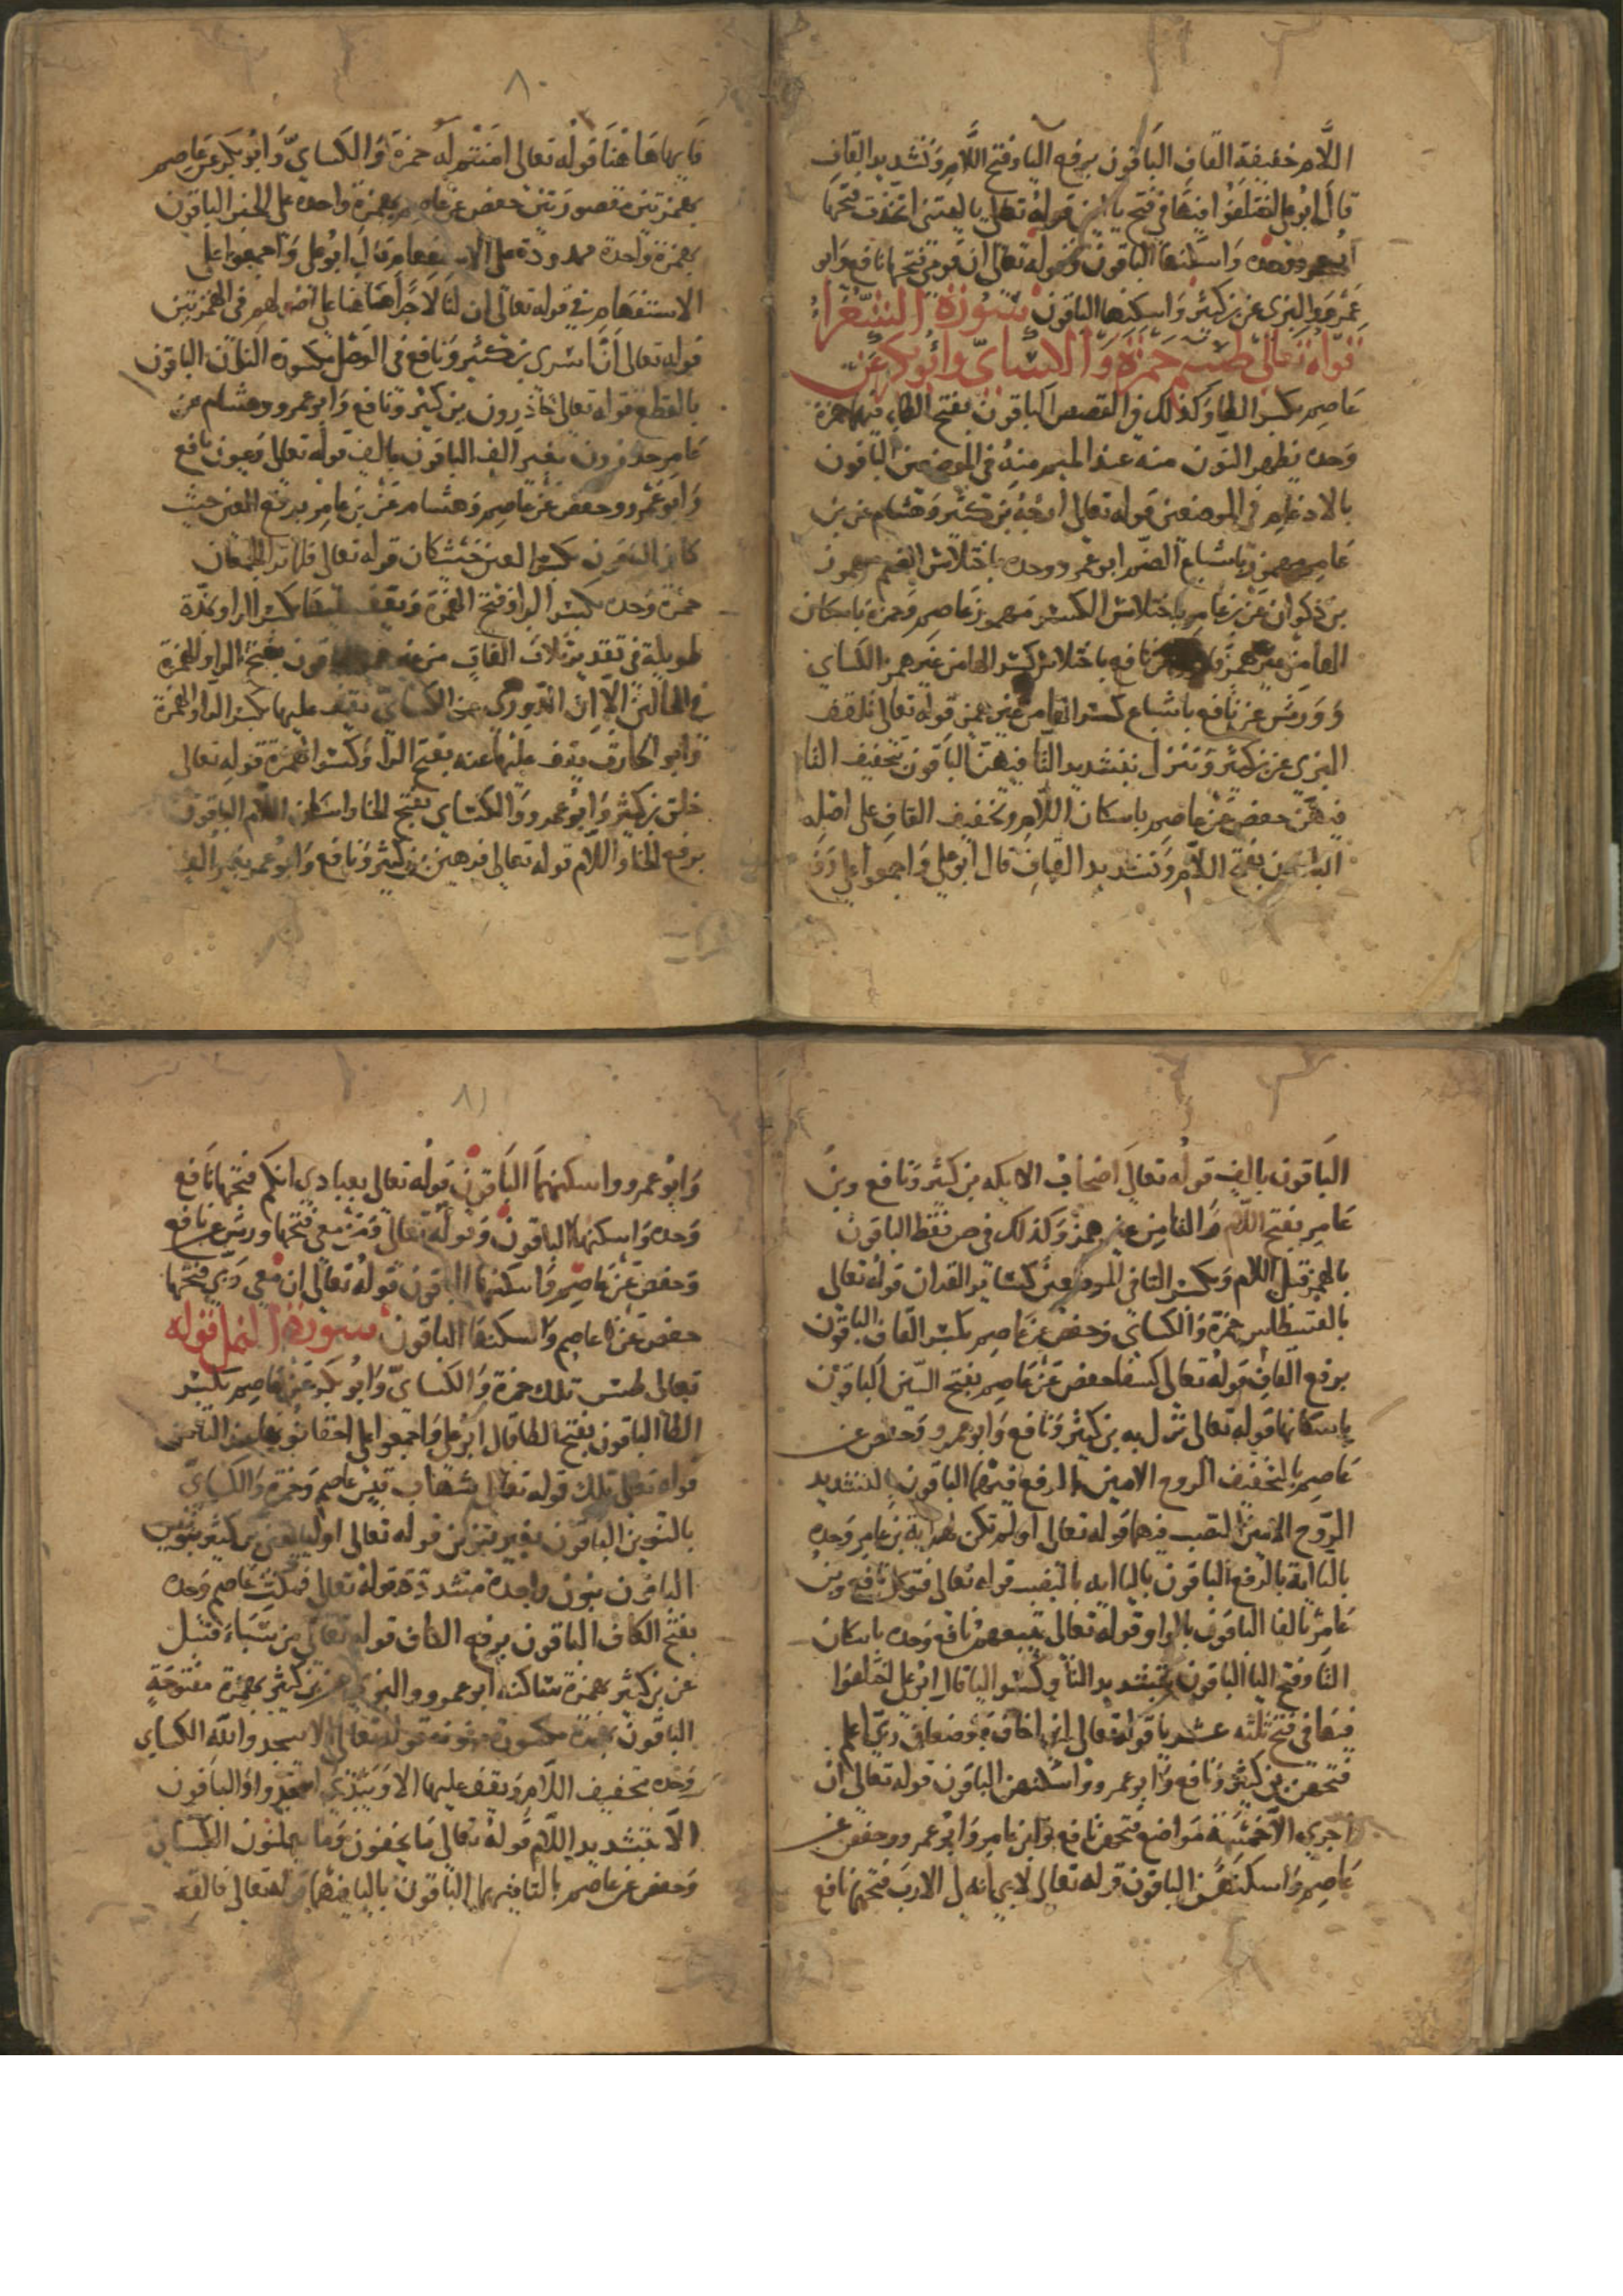 اللام خفيفة القاف الباقون برفع اليا وفتح اللام وتشديد القاف
قال ابو علي اختلفوا فيها في فتح ياين قوله تعالى ياليتني اتخذت فتحها
ابو عمرو وحده واسكنها الباقون وقوله تعالى ان قومي فتحها نافع وابو
عمرو والبزي عن بن كثير واسكنها الباقون سورة الشعراء
قوله تعالى طسم حمزة والكسائي وابو بكر عن
عاصم بكسر الطا وكذلك في القصص الباقون بفتح الطاء فيهما حمزة
وحده يظهر النون منه عند الميم منه في الموضعين الباقون
بالادغام في الموضعين قوله تعالى ارجه بن كثير وهشام عن بن
عامر مهموز باشباع الضم ابو عمرو وحده باختلاس الضم مهموز
بن ذكوان عن بن عامر باختلاس الكسر مهموز عاصم وحمزة باسكان
الها من غير همز نافع باختلاس كسر الها من غير همز الكساي
وورش عن نافع باشباع كسر الها من غير همز قوله تعالى تلقف
البزي عن بن كثير وتنزل بتشديد التا فيهن الباقون بتخفيف التا
فيهن حفص عن عاصم باسكان اللام وتخفيف القاف على اصله
الباقون بفتح اللام وتشديد القاف قال ابو علي واجمعوا على رفع
٨٠
فايها هاهنا قوله تعالى امنتم له حمزة والكساي وابو بكر عن عاصم
بهمزتين مقصورتين حفص عن عاصم بهمزة واحدة على الخبر الباقون
بهمزة واحدة ممدودة على الاستفهام قال ابو علي واجمعوا على
الاستفهام في قوله تعالى ان لنا لاجرا هاهنا على اصولهم في الهمزتين
قوله تعالى ان اسري بن كثير ونافع في الوصل بكسرة النون الباقون
بالقطع قوله تعالى حاذرون بن كثير ونافع وابو عمرو وهشام عن
عامر حذرون بغير الف الباقون بالف قوله تعالى وعيون نافع
وابو عمرو وحفص عن عاصم وهشام عن بن عامر برفع العين حيث
كان الباقون بكسر العين حيث كان قوله تعالى فلما ترا الجمعان
حمزة وحده بكسر الرا وفتح الهمزة ويقف عليها بكسر الرا وبمدة
طويلة في تقدير ثلاث الفات من غير همز الباقون بفتح الرا والهمزة
في الحالين الا ان الدوري عن الكساي يقف عليها بكسر الرا والهمزة
وابو الحارث يقف عليها عنه بفتح الرا وكسر الهمزة قوله تعالى
خلق بن كثير وابو عمرو والكساي بفتح الخا واسكان اللام الباقون
برفع الخا واللام قوله تعالى فرهين بن كثير ونافع وابو عمرو بغير الف
الباقون بالف قوله تعالى اصحاب الايكه بن كثير ونافع وبن
عامر بفتح اللام والتا من غير همز وكذلك في ص فقط الباقون
بالهمز قبل اللام وبكسر التا في الموضعين كساير القران قوله تعالى
بالقسطاس حمزة والكساي وحفص عن عاصم بكسر القاف الباقون
برفع القاف قوله تعالى كسفا حفص عن عاصم بفتح السين الباقون
باسكانها قوله تعالى نزل به بن كثير ونافع وابو عمرو وحفص عن
عاصم بالتخفيف الروح الامين بالرفع فيهما الباقون بالتشديد
الروح الامين النصب فيهما قوله تعالى اولم تكن لهم اية بن عامر وحده
بالتا اية بالرفع الباقون باليا ايه بالنصب قوله تعالى فتوكل نافع وبن
عامر بالفا الباقون بالواو قوله تعالى يتبعهم نافع وحده باسكان
التا وفتح البا الباقون بتشديد التا وكسر البا قال ابو علي اختلفوا
فيها في فتح ثلثه عشر يا قوله تعالى اني اخاف موضعان ربي اعلم
فتحهن بن كثير ونافع وابو عمرو واسكنهن الباقون قوله تعالى ان
اجري الا خمسة مواضع فتحهن نافع وابن عامر وابو عمرو وحفص عن
عاصم واسكنهن الباقون قوله تعالى لابي انه لي الا رب فتحهما نافع
٨١
وابو عمرو واسكنهما الباقون قوله تعالى بعبادي انكم فتحها نافع
وحده واسكنها الباقون وقوله تعالى ومن معي فتحها ورش عن نافع
وحفص عن عاصم واسكنها الباقون قوله تعالى ان معي ربي فتحها
حفص عن عاصم واسكنها الباقون سورة النمل قوله
تعالى طس تلك حمزة والكساي وابو بكر عن عاصم بكسر
الطا الباقون بفتح الطا قال ابو علي واجمعوا على اخفا نون
قوله تعالى تلك قوله تعالى بشهاب قبس عاصم وحمزة والكساي
بالتنوين الباقون بغير تنوين قوله تعالى اوليا تيني بن كثير بنونين
الباقون بنون واحدة مشددة قوله تعالى فمكث عاصم وحده
بفتح الكاف الباقون برفع الكاف قوله تعالى من سباء قنبل
عن بن كثير بهمزة ساكنه ابو عمرو والبزي عن بن كثير بهمزة مفتوحة
الباقون بهمزة مكسورة منونة قوله تعالى الا يسجدوا لله الكساي
وحده بتخفيف اللام ويقف عليها الا ويبتدي اسجدوا والباقون
الا بتشديد اللام قوله تعالى ما يخفون وما يعلنون الكساي
وحفص عن عاصم بالتا فيهما الباقون باليا فيهما قوله تعالى فالقه